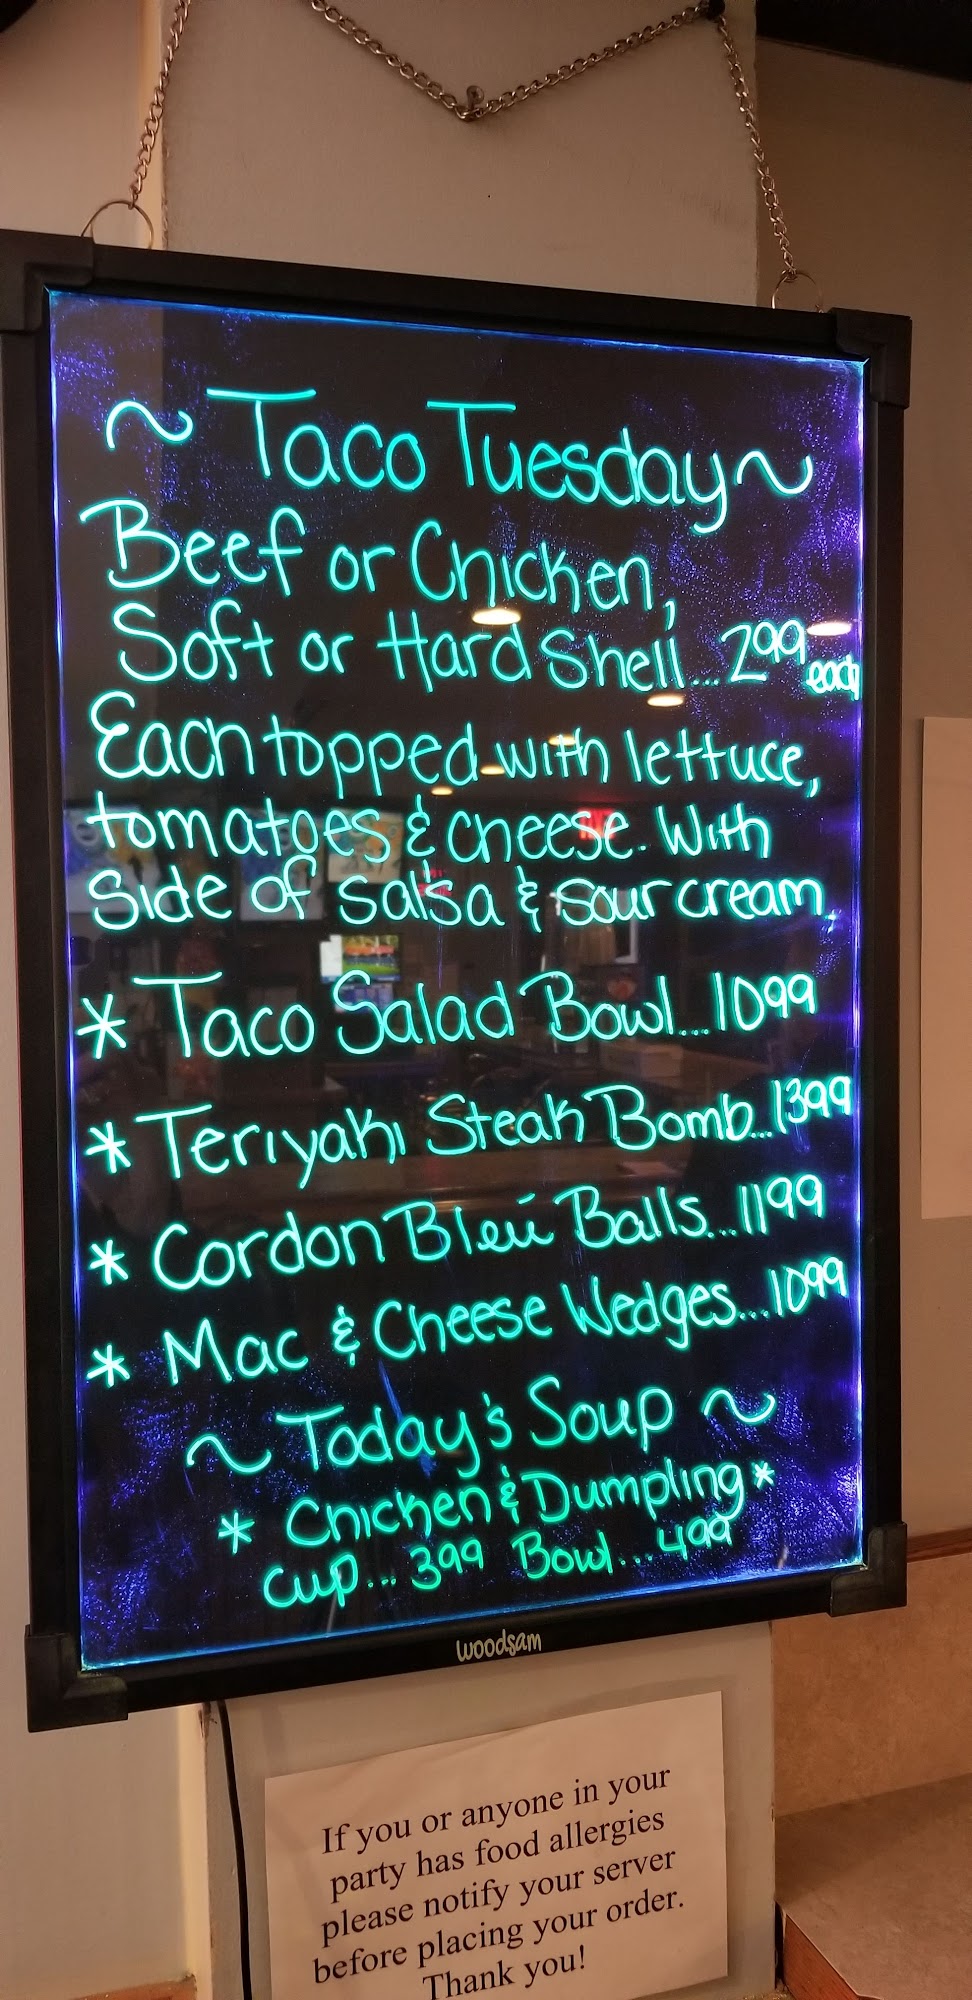 ~ Taco Tuesday ~
Beef or Chicken,
Soft or Hard Shell...299 each
Each topped with lettuce,
tomatoes & cheese. With
Side of salsa & sour cream.
* Taco Salad Bowl...1099
* Teriyaki Steak Bomb...1399
* Cordon Bleu Balls...1199
* Mac & Cheese Wedges...1099
~ Today's Soup ~
* Chicken & Dumpling *
Cup...399 Bowl...499
woodsam
If you or anyone in your
party has food allergies
please notify your server
before placing your order.
Thank you!